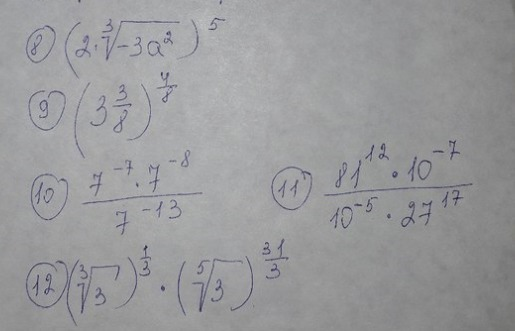 ⑧ (2·∛(-3a²))⁵
⑨ (3 3/8)^(7/8)
⑩ (7⁻⁷·7⁻⁸)/(7⁻¹³) ⑪ (81¹²·10⁻⁷)/(10⁻⁵·27¹⁷)
⑫ (∛3)^(1/3)·(⁵√3)^(31/3)